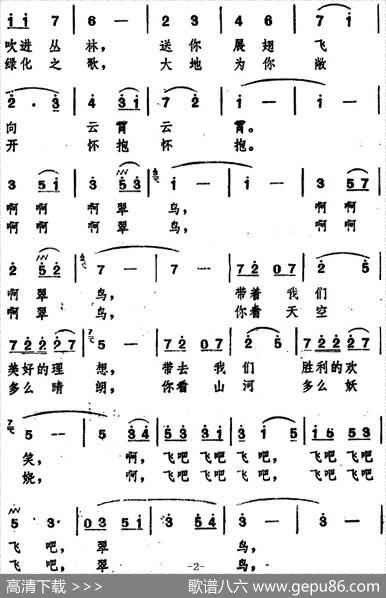 i i 7 | 6 — | 2 3 | 4 6 | 7 i |
吹进 丛 林， 送 你 展 翅 飞
绿化 之 歌， 大 地 为 你 敞
2 · 3 | 4 3 i | 7 2 | i — | i — |
向 云 霄 云 霄。
开 怀 抱 怀 抱。
3 5 i | 3 5 3 | i — | i — | 3 5 7 |
啊 啊 啊 翠 鸟， 啊 啊
啊 啊 啊 翠 鸟， 啊 啊
2 5 2 | 7 — | 7 — | 7 2 0 7 | 2 5 |
啊 翠 鸟， 带着 我 们
啊 翠 鸟， 你看 天 空
7 2 2 2 7 | 5 — | 7 2 0 7 | 2 5 | 7 2 2 2 7 |
美好的 理 想， 带去 我 们 胜利的 欢
多么 晴 朗， 你看 山 河 多么 妖
5 — | 5 3 4 | 5 3 3 i | 3 i 5 | i 6 5 3 |
笑， 啊， 飞吧 飞吧 飞 吧， 飞吧 飞吧
娆， 啊， 飞吧 飞吧 飞 吧， 飞吧 飞吧
5 3 · | 0 3 5 i | 3 5 4 | 3 — |
飞 吧， 翠 鸟，
飞 吧， 翠 鸟，
-2-
高清下载 >>>
歌谱八六 www.gepu86.com